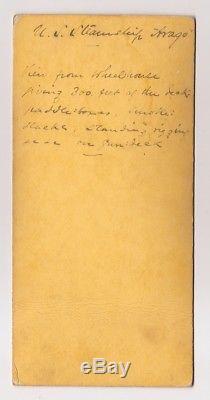 U.S. Steamship Arago
View from Wheelhouse
giving 300 feet of the deck
paddle boxes, smoke
stacks, standing rigging
seen on Gun deck